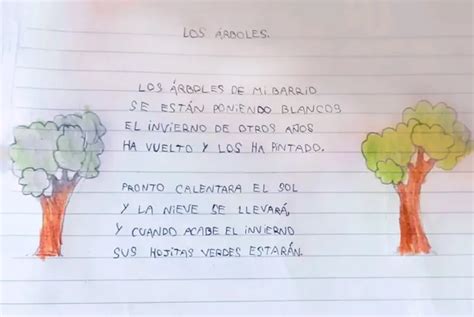 LOS ÁRBOLES.
LOS ÁRBOLES DE MI BARRIO
SE ESTÁN PONIENDO BLANCOS
EL INVIERNO DE OTROS AÑOS
HA VUELTO Y LOS HA PINTADO.
PRONTO CALENTARA EL SOL
Y LA NIEVE SE LLEVARÁ,
Y CUANDO ACABE EL INVIERNO
SUS HOJITAS VERDES ESTARÁN.